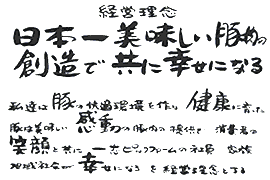 経営理念
日本一美味しい豚肉の
創造で共に幸せになる
私達は豚の快適環境を作り健康に育った
豚は美味しい感動の豚肉の提供で消費者の
笑顔と共に一志ピッグファームの社員家族
地域社会が幸せになるを経営理念とする